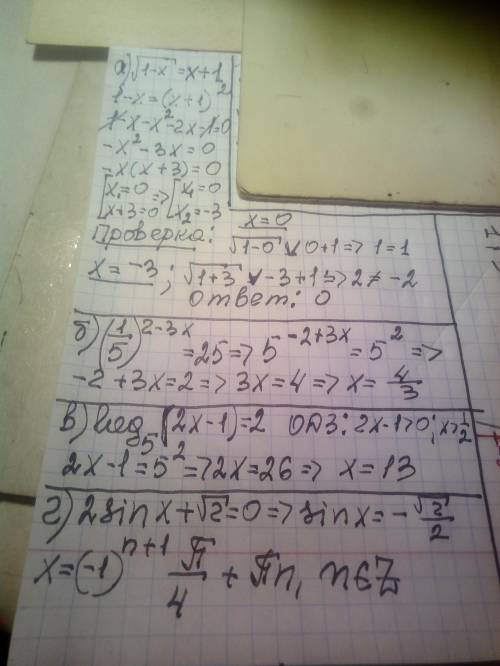 а) √1-x = x+1
1-x=(x+1)²
1-x-x²-2x-1=0
-x²-3x=0
-x(x+3)=0
[x₁=0 => [x₁=0
[x+3=0 [x₂=-3
Проверка: x=0
√1-0 ∨ 0+1 => 1=1
x=-3; √1+3 ∨ -3+1 => 2≠-2
Ответ: 0
б) (1/5)^2-3x = 25 => 5^-2+3x = 5² =>
-2+3x=2 => 3x=4 => x=4/3
в) log₅(2x-1)=2 ОДЗ: 2x-1>0; x>1/2
2x-1=5² => 2x=26 => x=13
г) 2sinx+√2=0 => sinx=-√2/2
x=(-1)^n+1 π/4 + πn, n∈Z